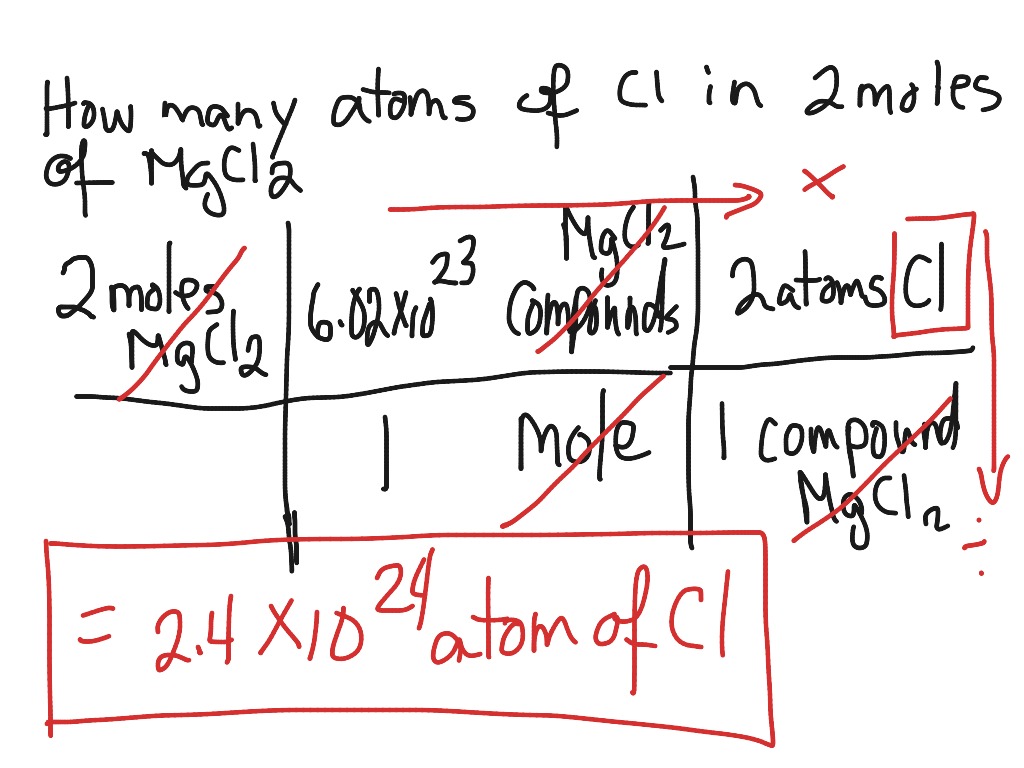 How many atoms of Cl in 2 moles
of MgCl2
×
2 moles
MgCl2
6.02×10^23
MgCl2
Compounds
2 atoms Cl
1 Mole
1 compound
MgCl2
÷
= 2.4 ×10^24 atom of Cl